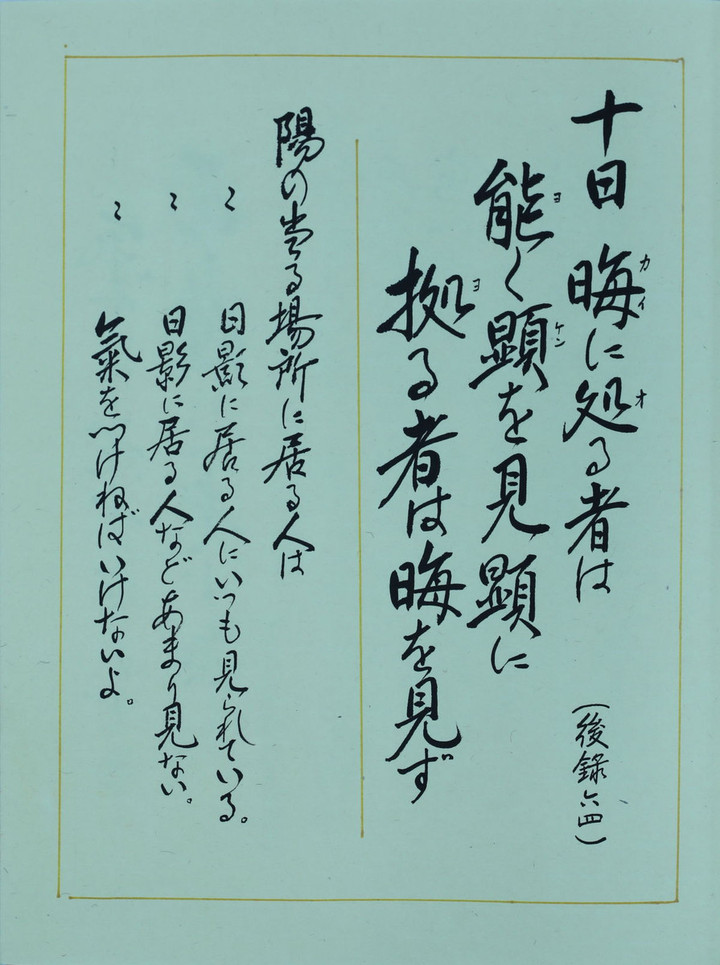 十日 晦に処る者は
(後録六四)
能く顕を見顕に
拠る者は晦を見ず
カイ
オ
ヨ
ケン
ヨ
陽の当る場所に居る人は
〃 日影に居る人にいつも見られている。
〃 日影に居る人などあまり見ない。
〃 氣をつけねばいけないよ。